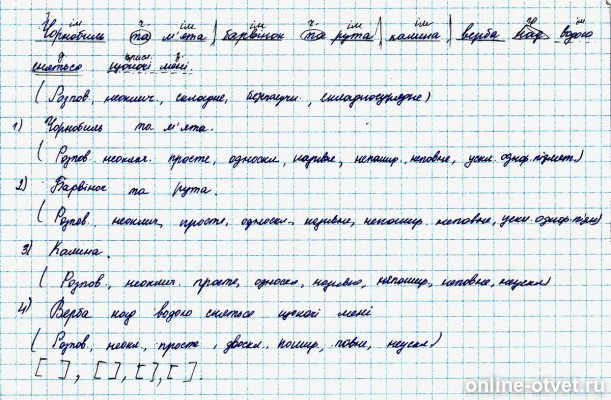 ім ч ім ім ч ім ім пр ім
Чорнобиль та м'ята, барвінок та рута, калина, верба над водою
д присл. д
сняться щоночі мені.
( Розпов., неоклич., складне, безсполучн., складносурядне)
1) Чорнобиль та м'ята.
( Розпов. неоклич. просте, односкл., називне, непошир. неповне, ускл. однор. підмет.)
2) Барвінок та рута.
( Розпов. неоклич., просте, односкл. називне, непошир. неповне, ускл. однор. підм)
3) Калина.
( Розпов., неоклич. просте, односкл., називне, непошир., неповне, неускл)
4) Верба над водою сняться щоночі мені
( Розпов., неокл., просте, двоскл. пошир., повне, неускл)
[ ], [ ], [ ], [ ].
online-otvet.ru